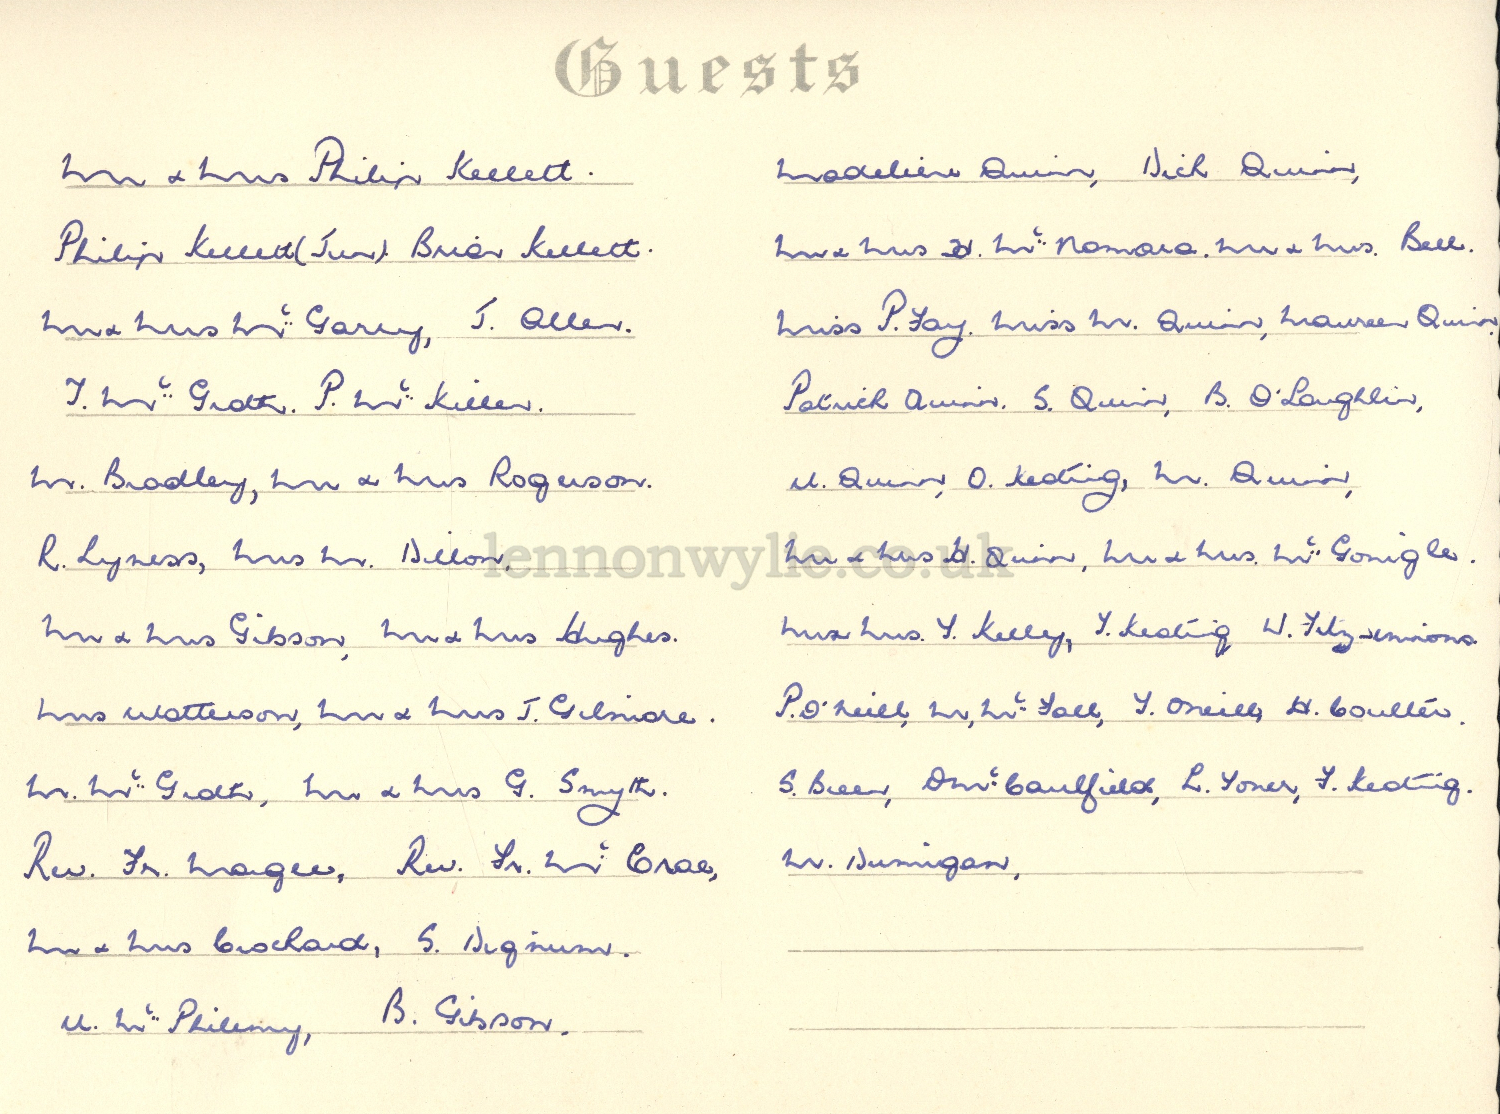 Guests
Mr & Mrs Philip Kellett.
Philip Kellett (Jun). Brian Kellett.
Mr & Mrs Mc Garry, J. Allen.
T. Mc Grath. P. Mc Killen.
M. Bradley, Mr & Mrs Rogerson.
R. Lyness, Mrs M. Dillon,
Mr & Mrs Gibson, Mr & Mrs Hughes.
Mrs Watterson, Mr & Mrs J. Gilmore.
M. Mc Grath, Mr & Mrs G. Smyth.
Rev. Fr. Magee, Rev. Fr. Mc Crae,
Mr & Mrs Crochard, S. Dignum.
U. Mc Philemy, B. Gibson.
Madeliene Quinn, Dick Quinn,
Mr & Mrs H. Mc Namara. Mr & Mrs. Bell.
Miss P. Fay. Miss M. Quinn, Maureen Quinn,
Patrick Quinn. S. Quinn, B. O'Loughlin,
U. Quinn, O. Keating, M. Quinn,
Mr & Mrs H. Quinn, Mr & Mrs. Mc Gonigle.
Mr & Mrs. T. Kelly, T. Keating W. Fitzsimmons
P. O'Neill, M, Mc Fall, T. O'Neill, H. Coulter.
S. Breen, D Mc Caulfield, L. Toner, F. Keating.
M. Dumigan,
lennonwylie.co.uk